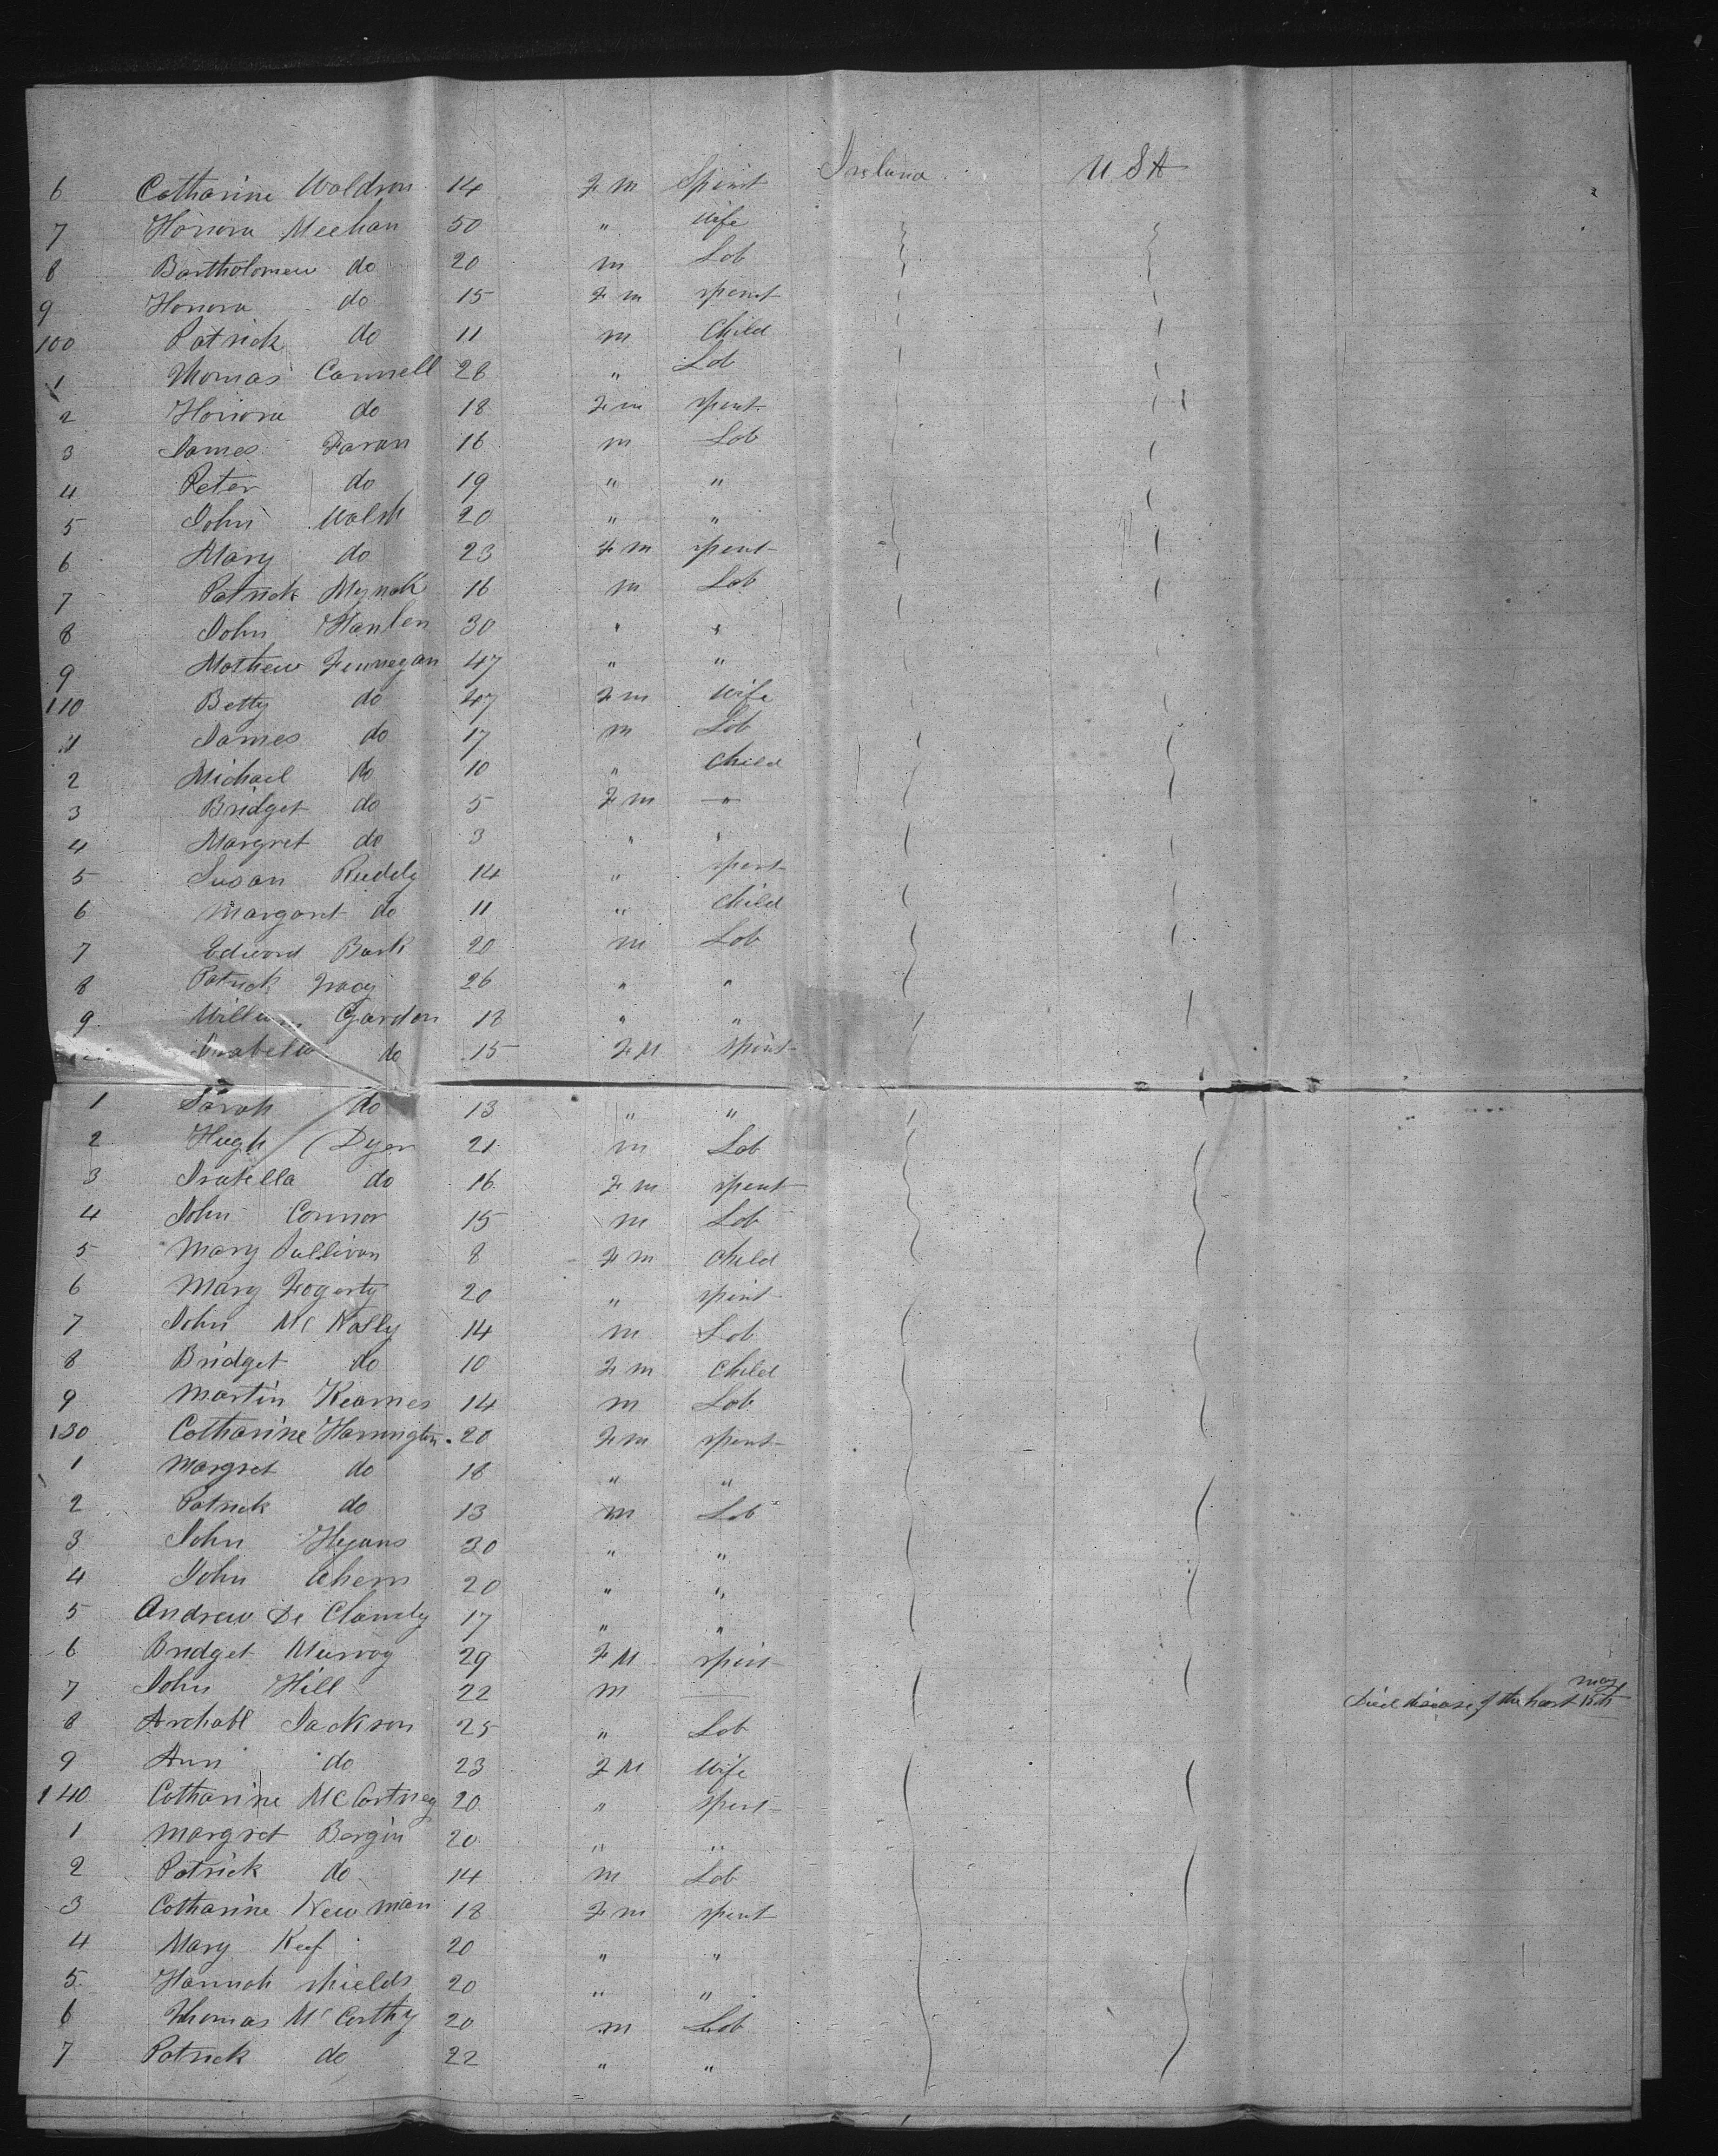 6 Catharine Waldron 14 Fm Spinst Ireland U S A
7 Honora Meehan 50 " Wife
8 Bartholomew do 20 m Lab
9 Honora do 15 Fm spinst
100 Patrick do 11 m Child
1 Thomas Cannell 28 " Lab
2 Honora do 18 Fm spinst
3 James Faran 16 m Lab
4 Peter do 19 " "
5 John Walsh 20 " "
6 Mary do 23 Fm spinst
7 Patrick 16 m Lab
8 John Hanlen 30 " "
9 Mathew Finnegan 47 " "
110 Betty do 47 Fm Wife
11 James do 17 m Lab
2 Michael do 10 " Child
3 Bridget do 5 Fm "
4 Margret do 3 " "
5 Susan Ruddy 14 " spinst
6 Margaret do 11 " Child
7 Edward Bark 20 m Lab
8 Patrick 26 " "
9 William Gardon 18 " "
do 15 FM spinst
1 Sarah do 13 " "
2 Hugh Dyer 21 m Lab
3 Isabella do 16 Fm spinst
4 John Connor 15 m Lab
5 Mary Sullivan 8 Fm Child
6 Mary Fogerty 20 " spinst
7 John Mc Nally 14 m Lab
8 Bridget do 10 Fm Child
9 Martin Kearnes 14 m Lab
130 Catharine Harrington 20 Fm spinst
1 Margret do 18 " "
2 Patrick do 13 m Lab
3 John Hyans 30 " "
4 John Ahern 20 " "
5 Andrew De 17 " "
6 Bridget Murray 29 FM spinst
7 John Hill 22 m — Died disease of the heart May 15th
8 Archabl Jackson 25 " Lab
9 Ann do 23 FM Wife
140 Catharine McCartney 20 " spinst
1 Margret Bergin 20 " "
2 Patrick do 14 m Lab
3 Catharine Newman 18 Fm spinst
4 Mary Keef 20 " "
5 Hannah Shields 20 " "
6 Thomas McCarthy 20 m Lab
7 Patrick do 22 " "